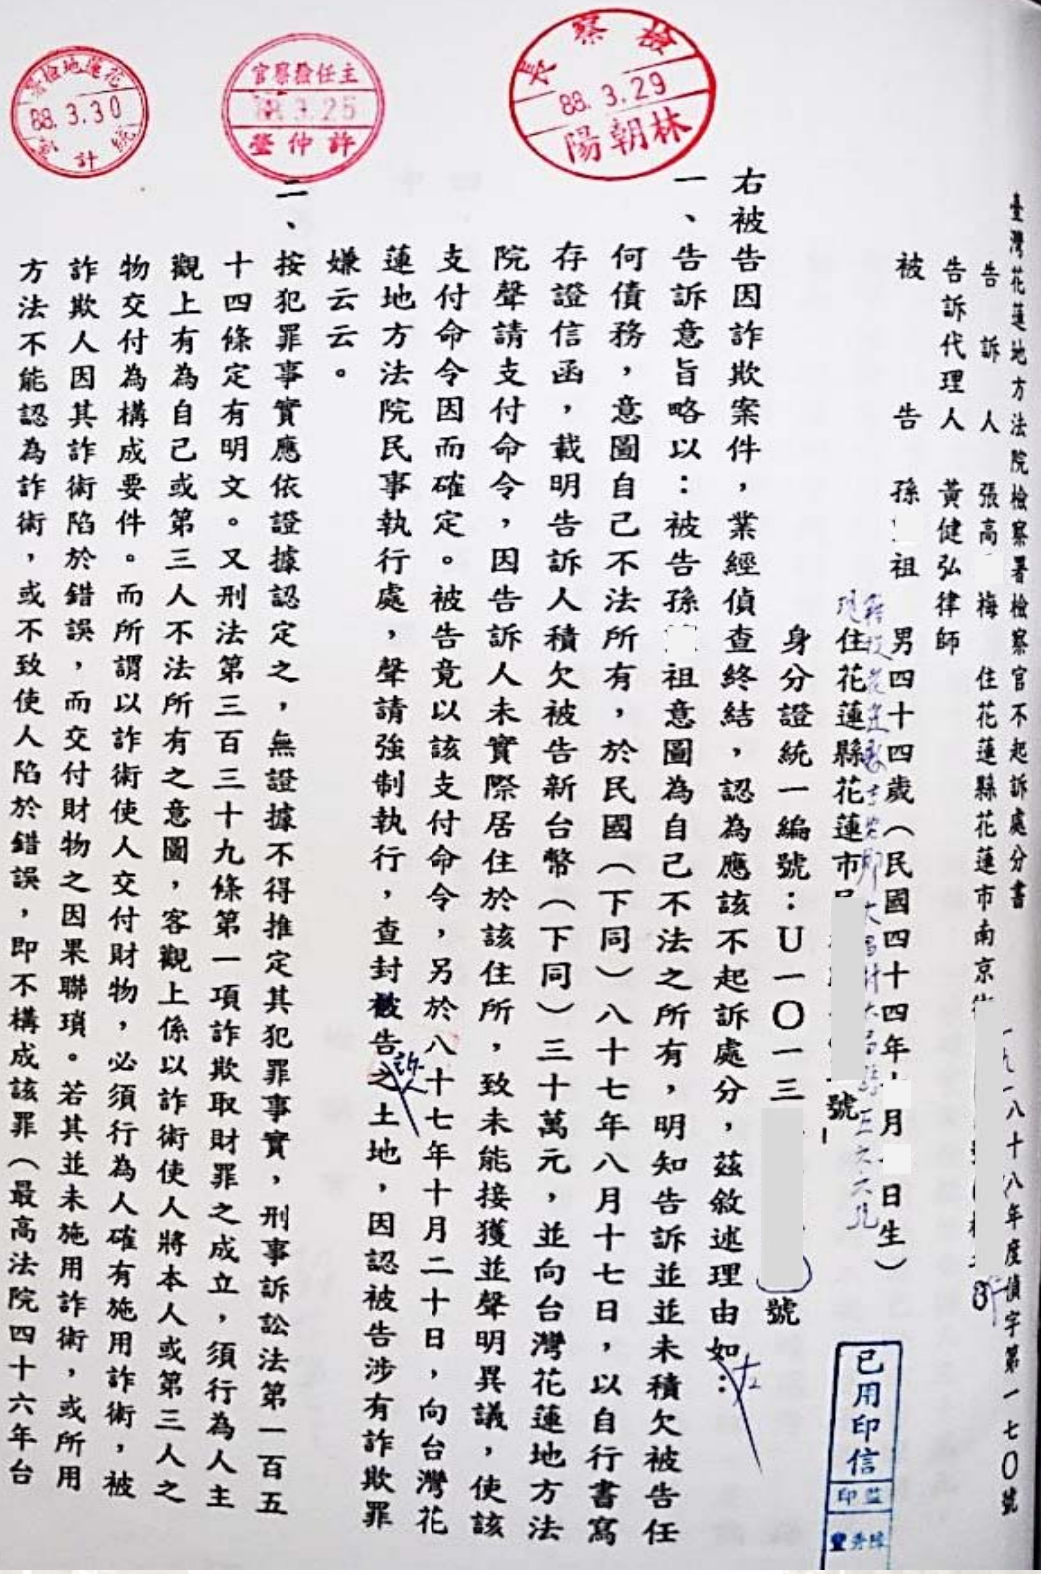 臺灣花蓮地方法院檢察署檢察官不起訴處分書
八十八年度偵字第一七〇號
告訴人 張高 梅 住花蓮縣花蓮市南京街
告訴代理人 黃健弘律師
被告 孫 祖 男四十四歲（民國四十四年 月 日生）
住花蓮縣花蓮市 號
身分證統一編號：U一〇一三 號
右被告因詐欺案件，業經偵查終結，認為應該不起訴處分，茲敘述理由如：左
一、告訴意旨略以：被告孫 祖意圖為自己不法之所有，明知告訴並並未積欠被告任
何債務，意圖自己不法所有，於民國（下同）八十七年八月十七日，以自行書寫
存證信函，載明告訴人積欠被告新台幣（下同）三十萬元，並向台灣花蓮地方法
院聲請支付命令，因告訴人未實際居住於該住所，致未能接獲並聲明異議，使該
支付命令因而確定。被告竟以該支付命令，另於八十七年十月二十日，向台灣花
蓮地方法院民事執行處，聲請強制執行，查封被告之土地，因認被告涉有詐欺罪
嫌云云。
二、按犯罪事實應依證據認定之，無證據不得推定其犯罪事實，刑事訴訟法第一百五
十四條定有明文。又刑法第三百三十九條第一項詐欺取財罪之成立，須行為人主
觀上有為自己或第三人不法所有之意圖，客觀上係以詐術使人將本人或第三人之
物交付為構成要件。而所謂以詐術使人交付財物，必須行為人確有施用詐術，被
詐欺人因其詐術陷於錯誤，而交付財物之因果聯瑣。若其並未施用詐術，或所用
方法不能認為詐術，或不致使人陷於錯誤，即不構成該罪（最高法院四十六年台
檢察長
88.3.29
林朝陽
主任檢察官
88.3.25
許仲瑩
花蓮地檢署
88.3.30
統計
已用印信
監印